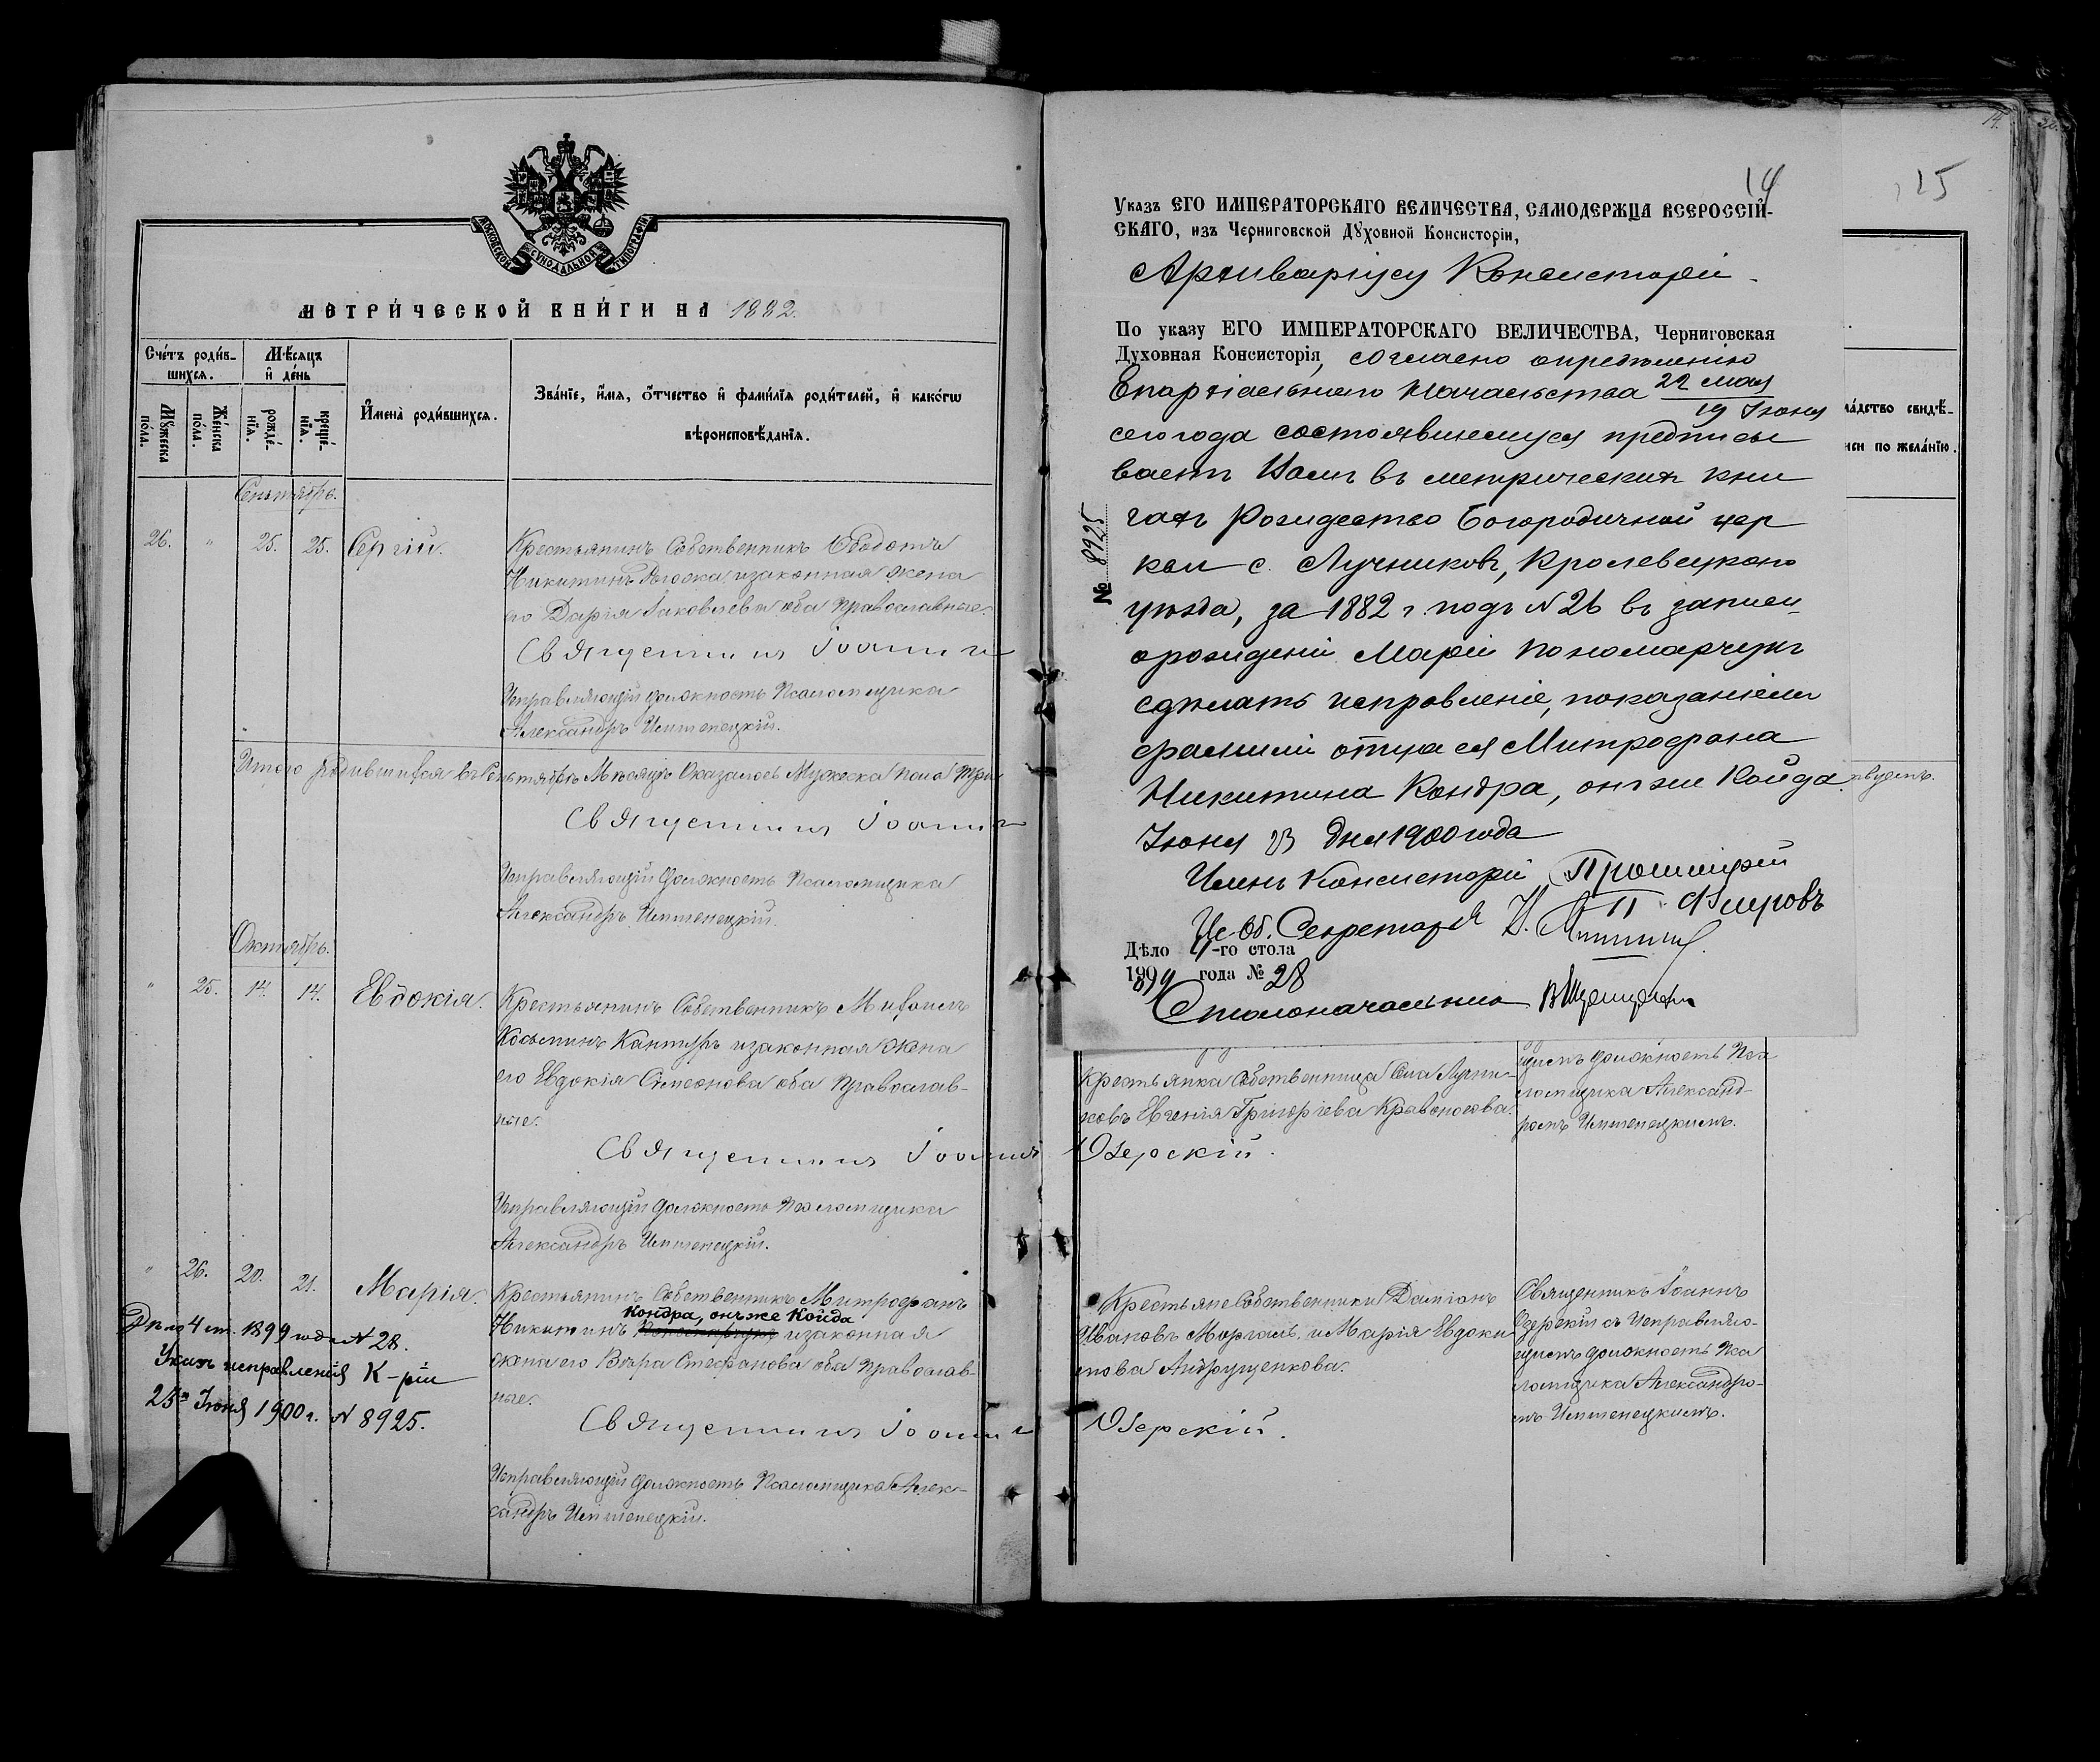 МОСКОВСКОЙ СѴНОДАЛЬНОЙ ТИПОГРАФІИ
МЕТРИ́ЧЕСКОЙ КНИ́ГИ НА 1882.
Сче́тъ роди́в-
шихся.
Мѣ́сяцъ
и҆ де́нь
Мꙋ́жеска по́ла.
Же́нска по́ла.
рожде́-нїя.
креще́-нїя.
И҆мена̀ роди́вшихся.
Зва́нїе, и҆́мя, ѻ҆́тчество и҆ фами́лїя роди́телей, и҆ како́гѡ
вѣроисповѣ́данїя.
Сентябрь.
26. " 25. 25. Сергій.
Крестьянинъ Собственникъ Ѳеодотъ
Никитинъ изаконная жена
его Дарія Іаковлева оба православные.
Священникъ Іоаннъ
Исправляющій должность Псаломщика
Александръ
Итого родившихся въ Сентябрѣ Мѣсяцѣ Оказалось Мужеска пола три
Священникъ Іоаннъ
Исправляющій должность Псаломщика
Александръ
Октябрь.
" 25. 14. 14. Евдокія.
Крестьянинъ Собственникъ Михаилъ
Косьминъ Кантуръ изаконная жена
его Евдокія Симеонова оба Православ-
ные.
Священникъ Іоаннъ
Исправляющій должность Псаломщика
Александръ
" 26. 20. 21. Марія.
Крестьянинъ Собственникъ Митрофанъ
Кондра, онъ же Койда
Никитинъ изаконная
жена его Вѣра Стефанова оба Православ-
ные.
Священникъ Іоаннъ
Исправляющій должность Псаломщика Алек-
сандръ
Дѣло 4 ст. 1899 года N 28.
Указъ исправленія К-ріи
23го Іюня 1900 г. N 8925.
14
14.
15
Указъ ЕГО ИМПЕРАТОРСКАГО ВЕЛИЧЕСТВА, САМОДЕРЖЦА ВСЕРОССІЙ-
СКАГО, изъ Черниговской Дꙋховной Консисторіи,
Архиваріусу Консисторіи
По указу ЕГО ИМПЕРАТОРСКАГО ВЕЛИЧЕСТВА, Черниговская
Духовная Консисторія, согласно опредѣленію
Епархіальнаго Начальства 22 мая
19 Іюня
сего года состоявшемуся предписы
ваетъ Вамъ въ метрическихъ кни
гахъ Рождество Богородичной цер
кви с. Лучниковъ, Кролевецкаго
уѣзда, за 1882 г. подъ N 26 въ записи
орожденіи Маріи Пономарчукъ
сдѣлать исправленіе, показаніемъ
фамиліи отца ея Митрофана
Никитина Кондра, онъ же Койда.
Іюня 23 дня 1900 года
Членъ Консисторіи
Ис. Об. Секретаря
Дѣло 4-го стола
1899 года № 28
Столоначальникъ
№ 8925
ꙋ́дство свидѣ́-
иси по жела́нїю.
Крестьянка Собственница Села Лучни-
ковъ Евгенія Григоріева Кравоносова.
Озерскій.
щимъ должность Пса
ломщика Александ-
ромъ
Крестьяне Собственники Даміанъ
Ивановъ Моргаль, и Марія Евдоки
мова Андрущенкова.
Озерскій.
Священникъ Іоаннъ
Озерскій съ Исправляю-
щимъ должность Пса
ломщика Александро-
мъ